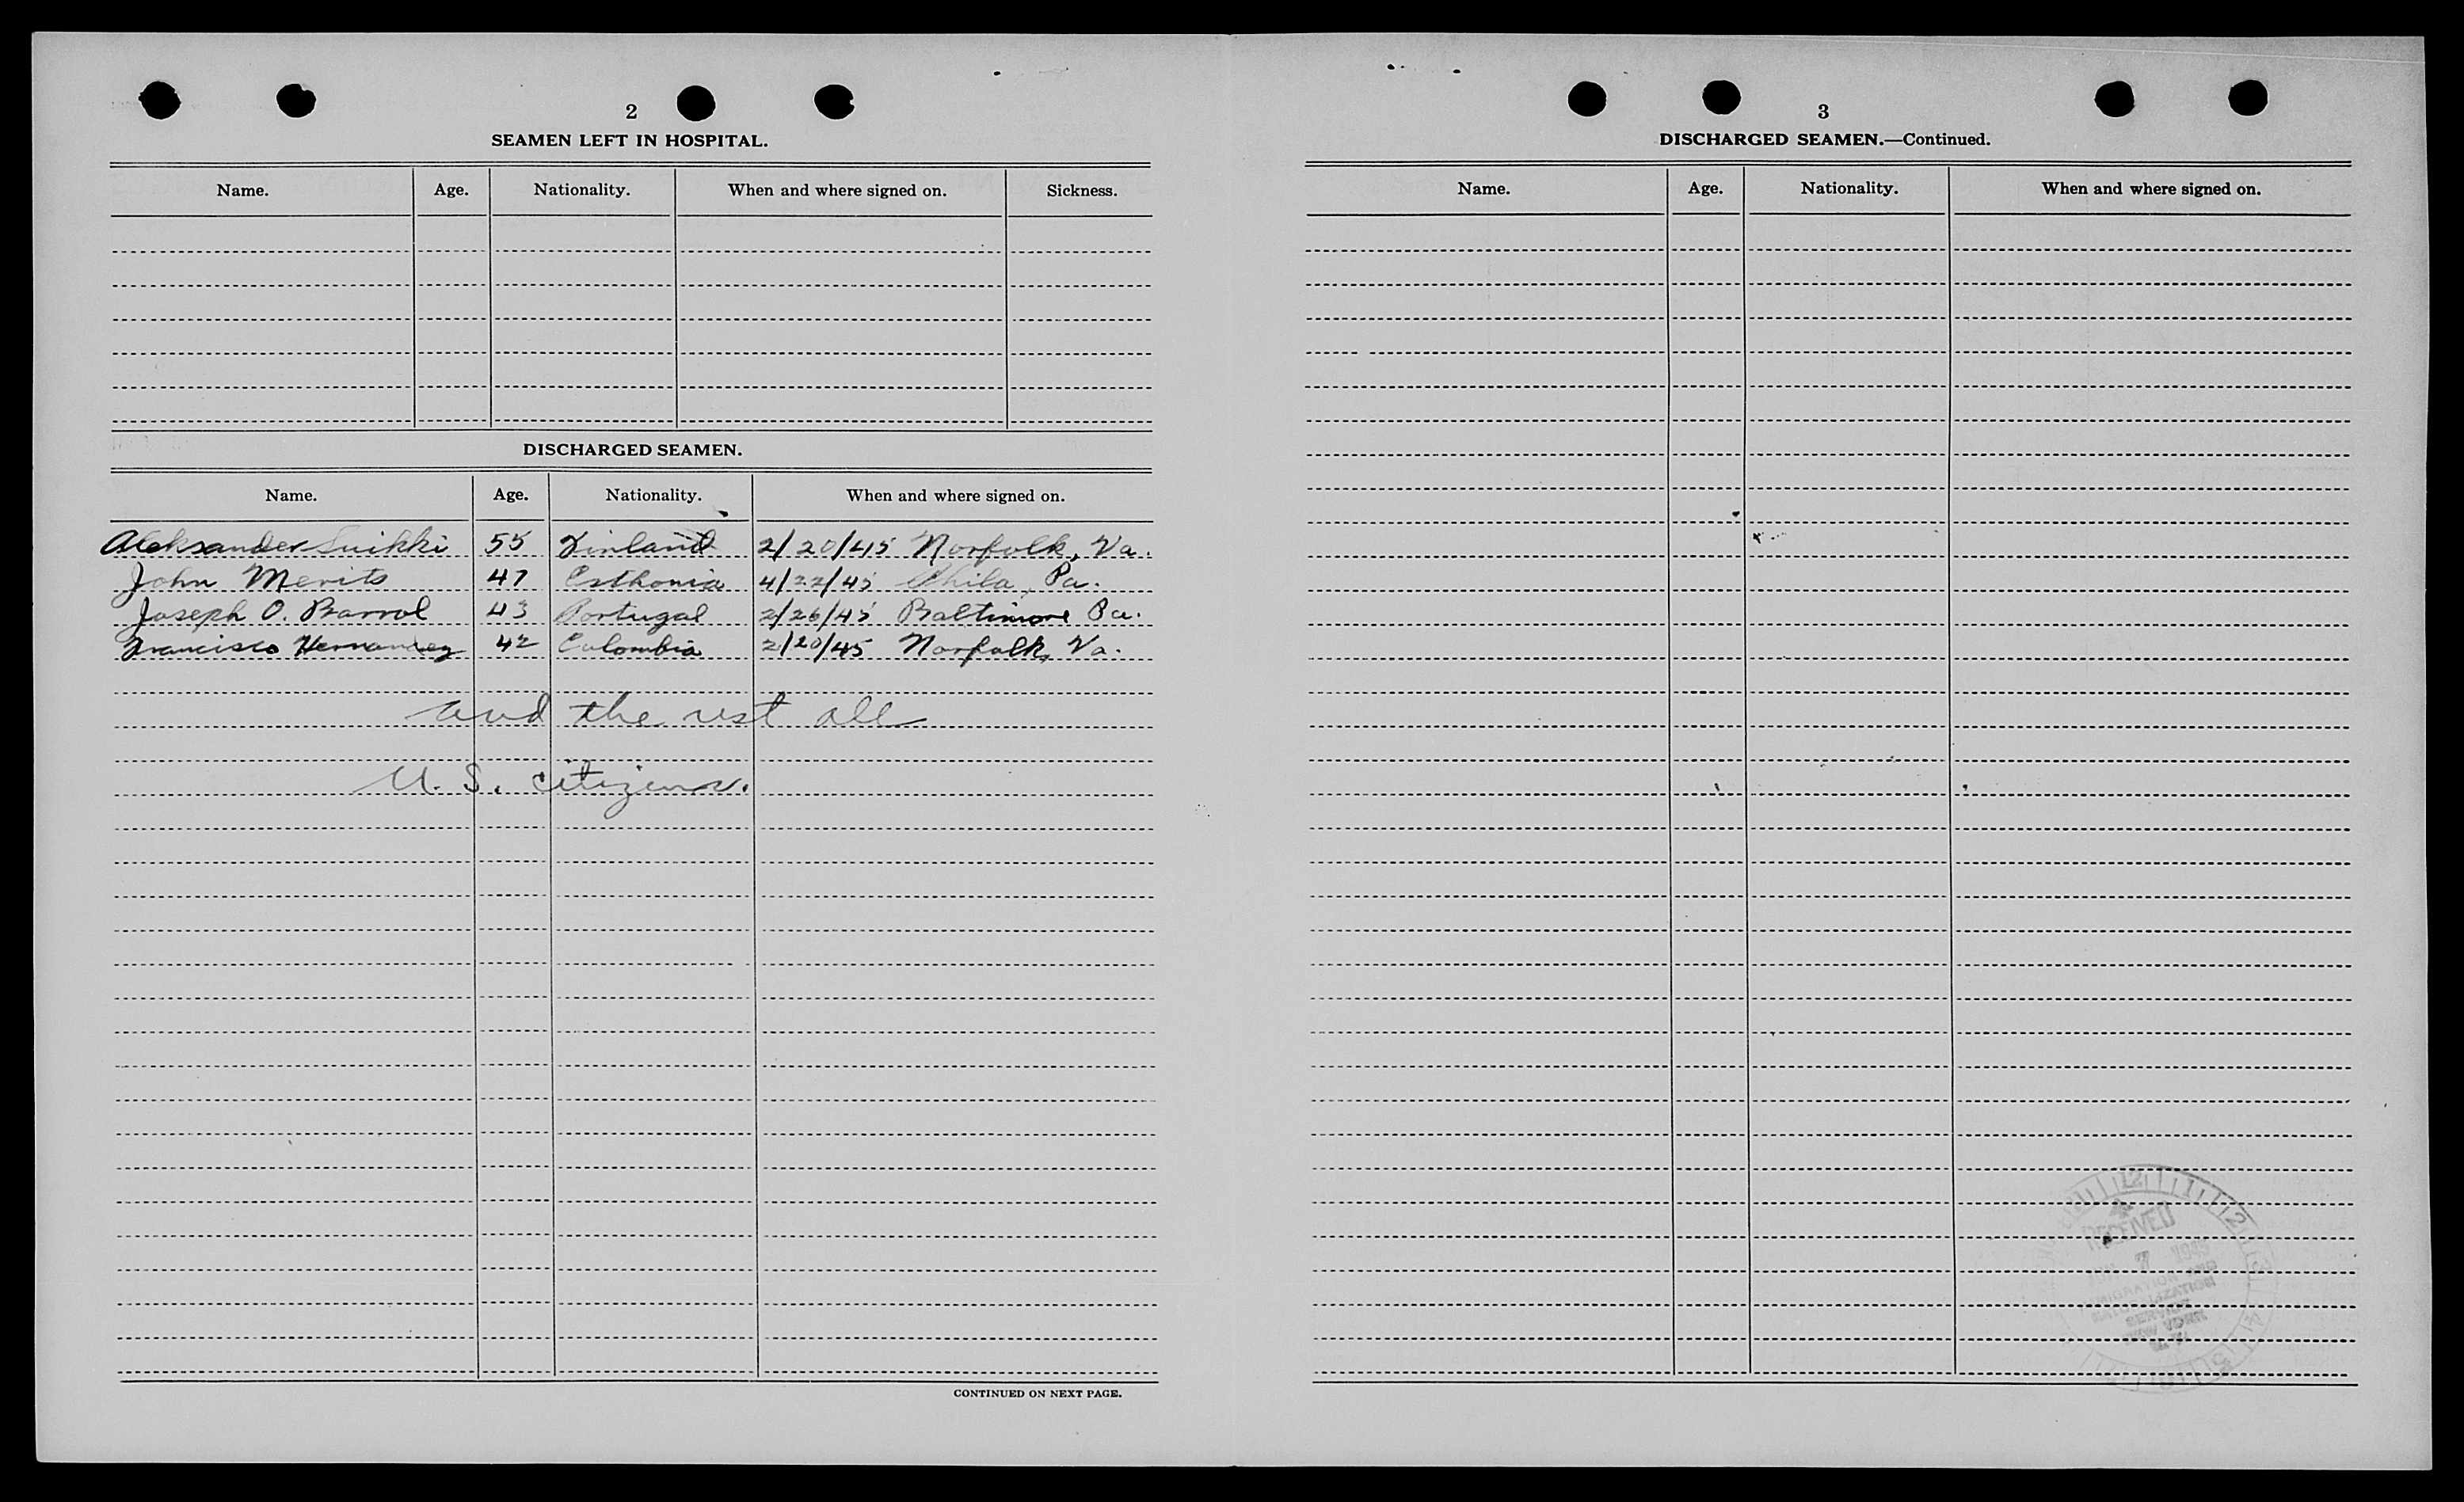 2
SEAMEN LEFT IN HOSPITAL.
Name. Age. Nationality. When and where signed on. Sickness.
DISCHARGED SEAMEN.
Name. Age. Nationality. When and where signed on.
Aleksander Suikki 55 Finland 2/20/45 Norfolk, Va.
John Merits 47 Esthonia 4/22/45 Phila, Pa.
Joseph O. Barrol 43 Portugal 2/26/45 Baltimore Pa.
Francisco Hernandez 42 Colombia 2/20/45 Norfolk, Va.
and the rest all
U. S. citizens.
CONTINUED ON NEXT PAGE.
3
DISCHARGED SEAMEN.—Continued.
Name. Age. Nationality. When and where signed on.
12 1 2 3 4 5
RECEIVED
7 1945
IMMIGRATION AND
NATURALIZATION
SERVICE
NEW YORK